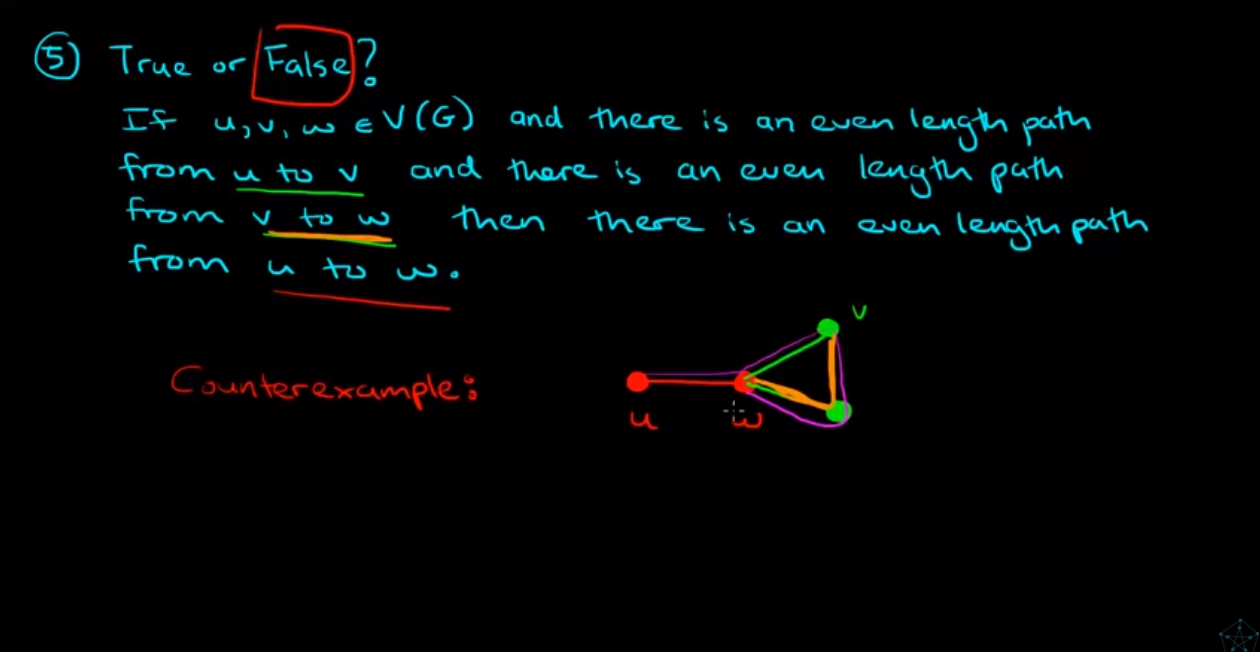 ⑤ True or False?
If u, v, w ∈ V(G) and there is an even length path
from u to v and there is an even length path
from v to w then there is an even length path
from u to w.
v
Counterexample:
u w